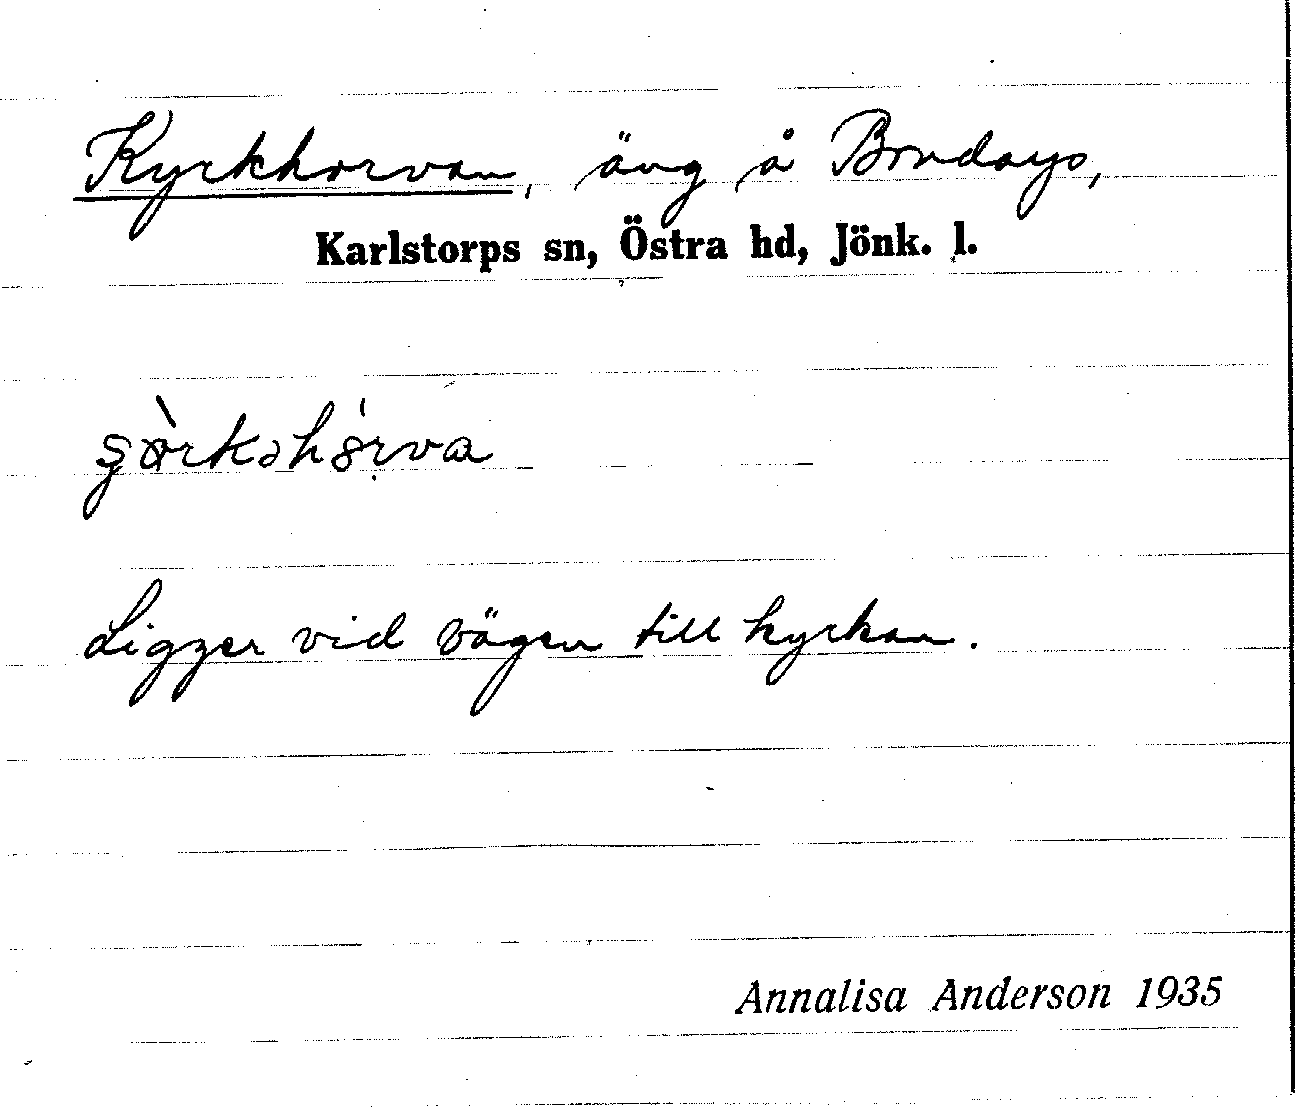 Kyrkhorvan, äng å Brudays,
Karlstorps sn, Östra hd, Jönk. l.
Ligger vid vägen till kyrkan.
Annalisa Anderson 1935